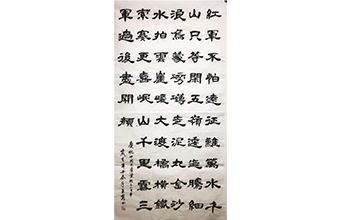 紅軍不怕遠征難萬水千
山只等閒五嶺逶迤騰細
浪烏蒙磅礴走泥丸金沙
水拍雲崖暖大渡橋橫鐵
索寒更喜岷山千里雪三
軍過後盡開顏